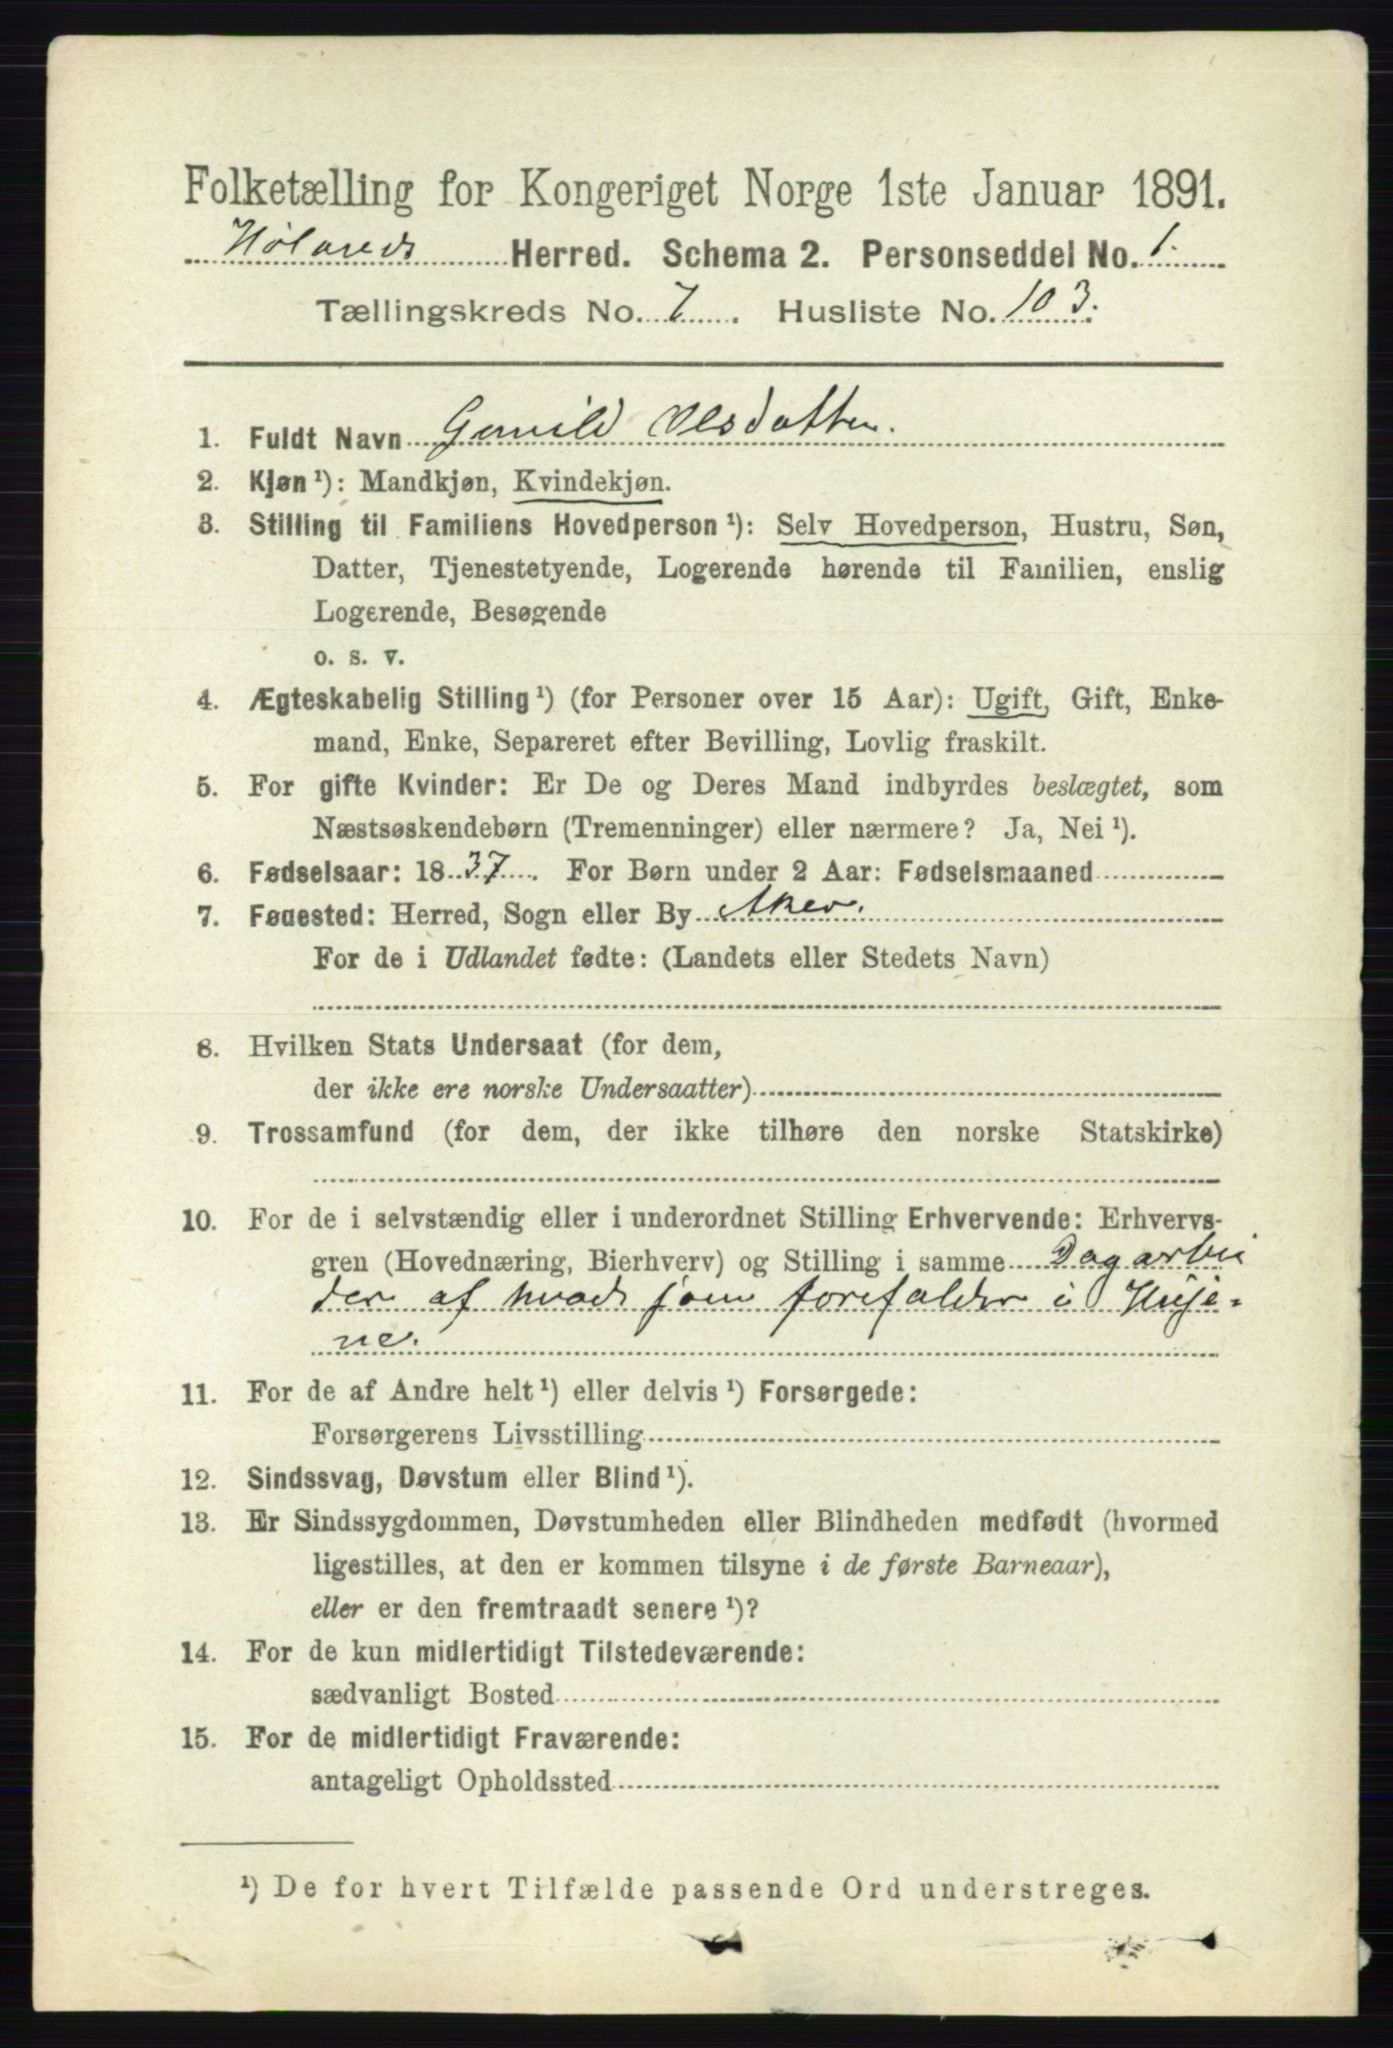 Folketælling for Kongeriget Norge 1ste Januar 1891.
Hølands Herred. Schema 2. Personseddel No. 1.
Tællingskreds No. 7. Husliste No. 103.
1. Fuldt Navn Gunild Olsdatter.
2. Kjøn ¹): Mandkjøn, Kvindekjøn.
3. Stilling til Familiens Hovedperson ¹): Selv Hovedperson, Hustru, Søn,
Datter, Tjenestetyende, Logerende hørende til Familien, enslig
Logerende, Besøgende
o. s. v.
4. Ægteskabelig Stilling ¹) (for Personer over 15 Aar): Ugift, Gift, Enke-
mand, Enke, Separeret efter Bevilling, Lovlig fraskilt.
5. For gifte Kvinder: Er De og Deres Mand indbyrdes beslægtet, som
Næstsøskendebørn (Tremenninger) eller nærmere? Ja, Nei ¹).
6. Fødselsaar: 1837. For Børn under 2 Aar: Fødselsmaaned
7. Fødested: Herred, Sogn eller By Aker.
For de i Udlandet fødte: (Landets eller Stedets Navn)
8. Hvilken Stats Undersaat (for dem,
der ikke ere norske Undersaatter)
9. Trossamfund (for dem, der ikke tilhøre den norske Statskirke)
10. For de i selvstændig eller i underordnet Stilling Erhvervende: Erhvervs-
gren (Hovednæring, Bierhverv) og Stilling i samme Dagarbei
der af hvad som forefalder i Huse-
ne.
11. For de af Andre helt ¹) eller delvis ¹) Forsørgede:
Forsørgerens Livsstilling
12. Sindssvag, Døvstum eller Blind ¹).
13. Er Sindssygdommen, Døvstumheden eller Blindheden medfødt (hvormed
ligestilles, at den er kommen tilsyne i de første Barneaar),
eller er den fremtraadt senere ¹)?
14. For de kun midlertidigt Tilstedeværende:
sædvanligt Bosted
15. For de midlertidigt Fraværende:
antageligt Opholdssted
¹) De for hvert Tilfælde passende Ord understreges.